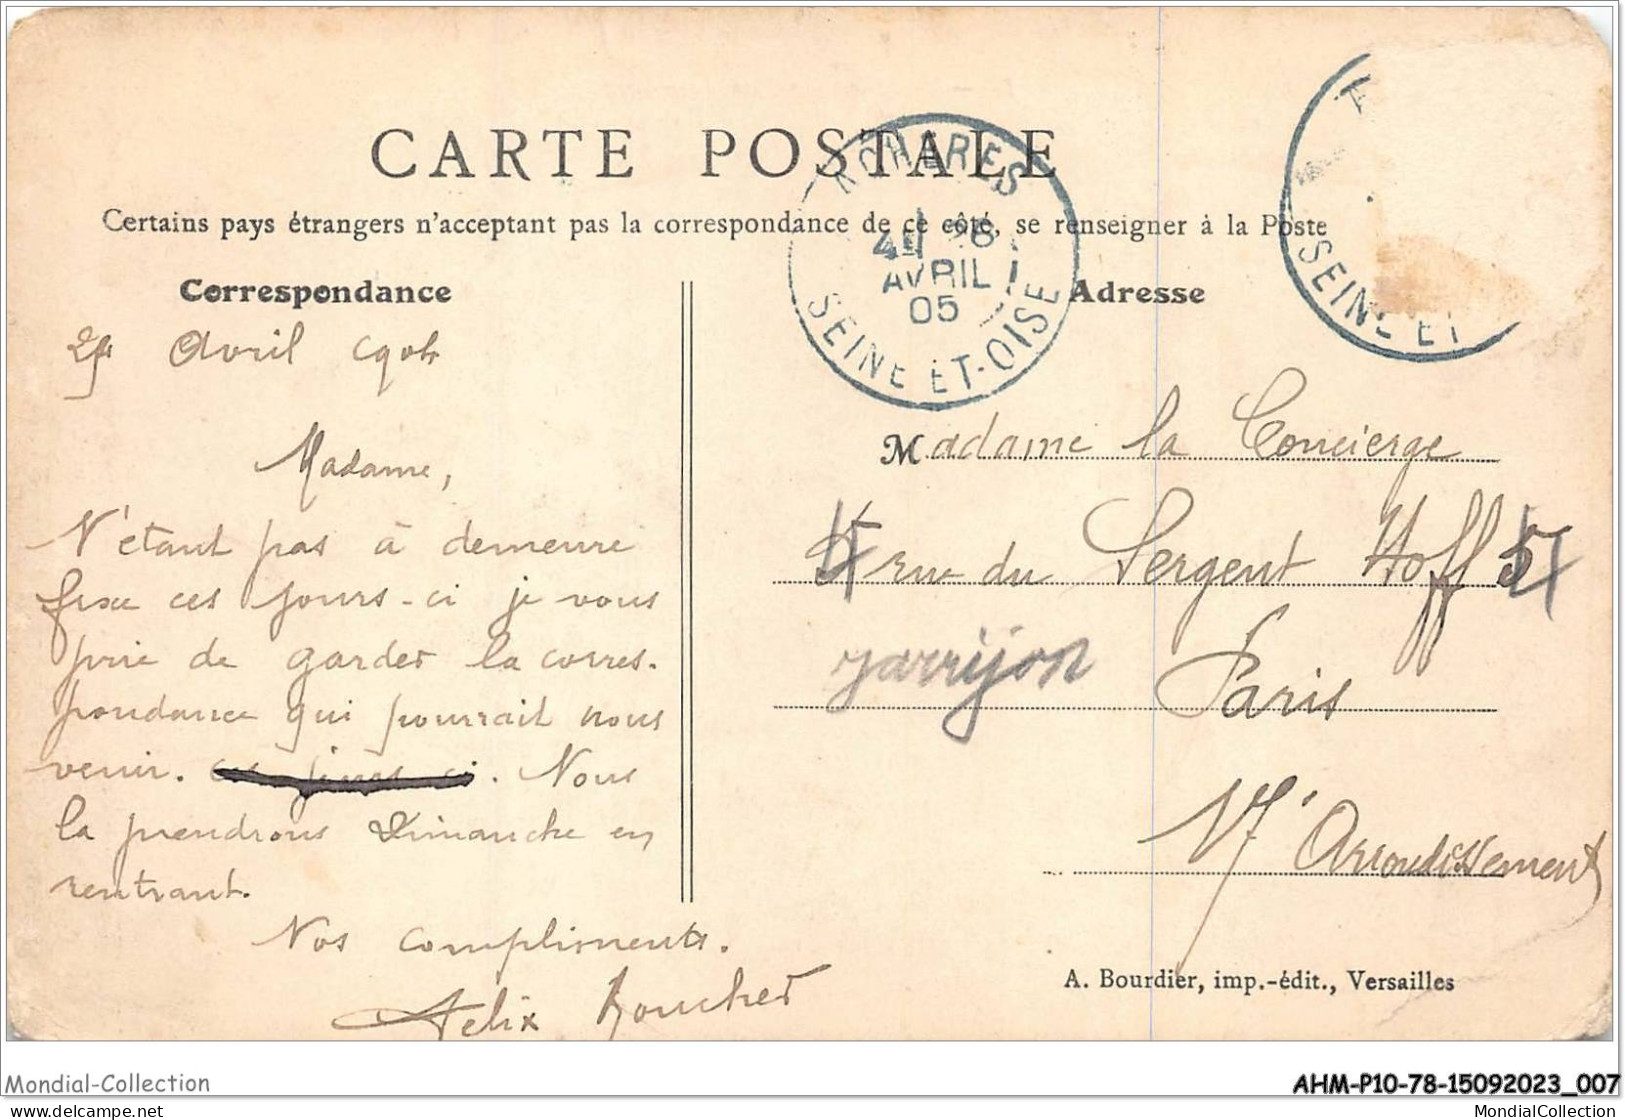 CARTE POSTALE
Certains pays étrangers n'acceptant pas la correspondance de ce côté, se renseigner à la Poste
Correspondance
Adresse
ACHÈRES
4E 26
AVRIL
05
SEINE-ET-OISE
SEINE ET
Avril
Madame,
N'étant pas à demeure
fixe ces jours-ci je vous
prie de garder la corres-
pondance qui pourrait nous
venir. ces jours ci. Nous
la prendrons Dimanche en
rentrant.
Nos compliments.
Felix Boucher
Madame la Concierge
rue du Sergent Hoff 5
Paris
17e Arrondissement
A. Bourdier, imp.-édit., Versailles
Mondial-Collection
AHM-P10-78-15092023_007
www.delcampe.net
MondialCollection